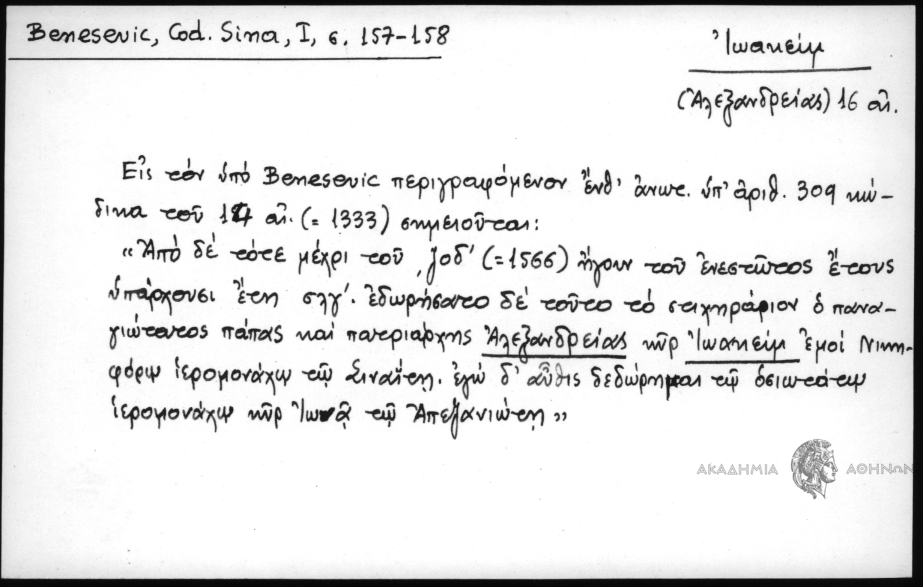 Benesevic, Cod. Sina, I, σ. 157-158
Ἰωακείμ
(Ἀλεξανδρείας) 16 αἰ.
Εἰς τόν ὑπό Benesevic περιγραφόμενον ἔνθ' ἀνωτ. ὑπ' ἀριθ. 309 κώ-
δικα τοῦ 14 αἰ. (= 1333) σημειοῦται:
«Ἀπό δέ τότε μέχρι τοῦ ͵ζοδ' (=1566) ἤγουν τοῦ ἐνεστῶτος ἔτους
ὑπάρχουσι ἔτη σλγ'. ἐδωρήσατο δέ τοῦτο τό στιχηράριον ὁ πανα-
γιώτατος πάπας καί πατριάρχης Ἀλεξανδρείας κῦρ Ἰωακείμ ἐμοί Νικη-
φόρῳ ἱερομονάχῳ τῷ Σιναΐτῃ. ἐγώ δ' αὖθις δεδώρημαι τῷ ὁσιωτάτῳ
ἱερομονάχῳ κῦρ Ἰωνᾷ τῷ
ΑΚΑΔΗΜΙΑ ΑΘΗΝΩΝ